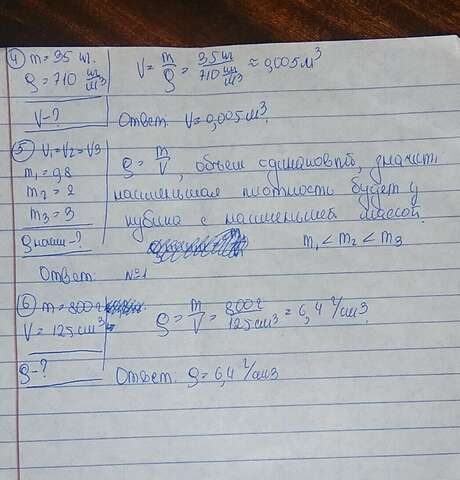 ④ m = 35 кг. V = m/ρ = 35 кг / 710 кг/м³ ≈ 0,005 м³
ρ = 710 кг/м³
V - ?
Ответ: V = 0,005 м³.
⑤ V₁ = V₂ = V3
m₁ = 0,8
m₂ = 2
m₃ = 3
ρ наим - ?
ρ = m/V, объем одинаковый, значит
наименьшая плотность будет у
кубика с наименьшей массой.
m₁ < m₂ < m₃
Ответ: №1
⑥ m = 800 г
V = 125 см³
ρ - ?
ρ = m/V = 800 г / 125 см³ = 6,4 г/см³
Ответ: ρ = 6,4 г/см3